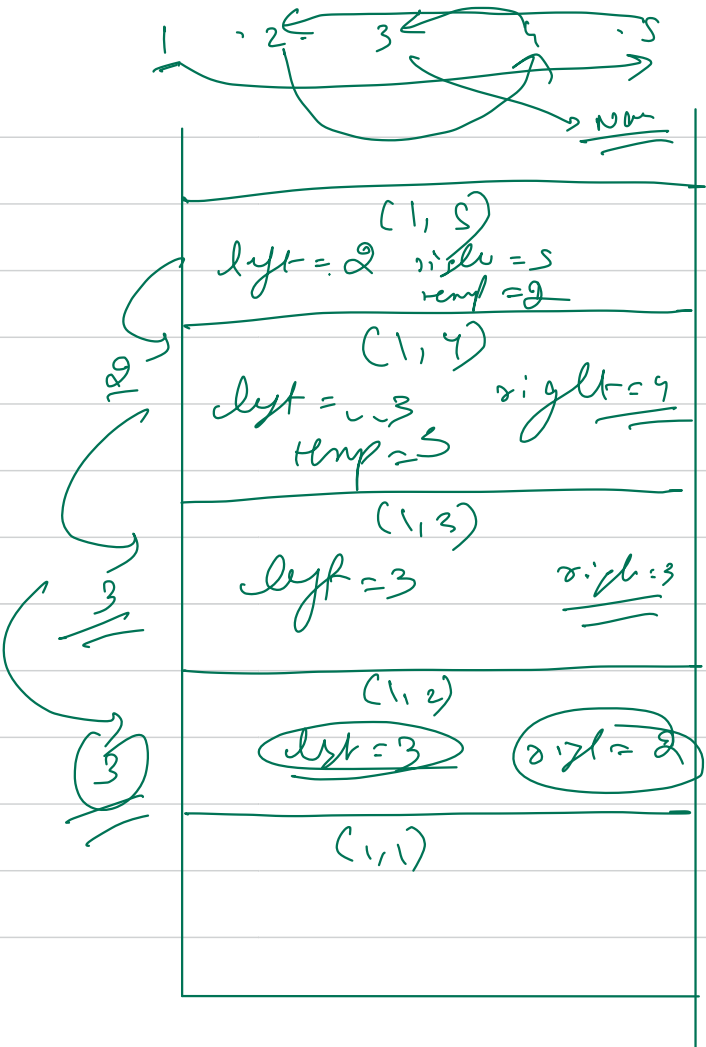 1 2 3 4 5
Non
(1, 5)
left = 2 right = 5
temp = 2
(1, 4)
2
left = 3 right = 4
temp = 5
(1, 3)
left = 3 right = 3
3
(1, 2)
left = 3 right = 2
3
(1, 1)